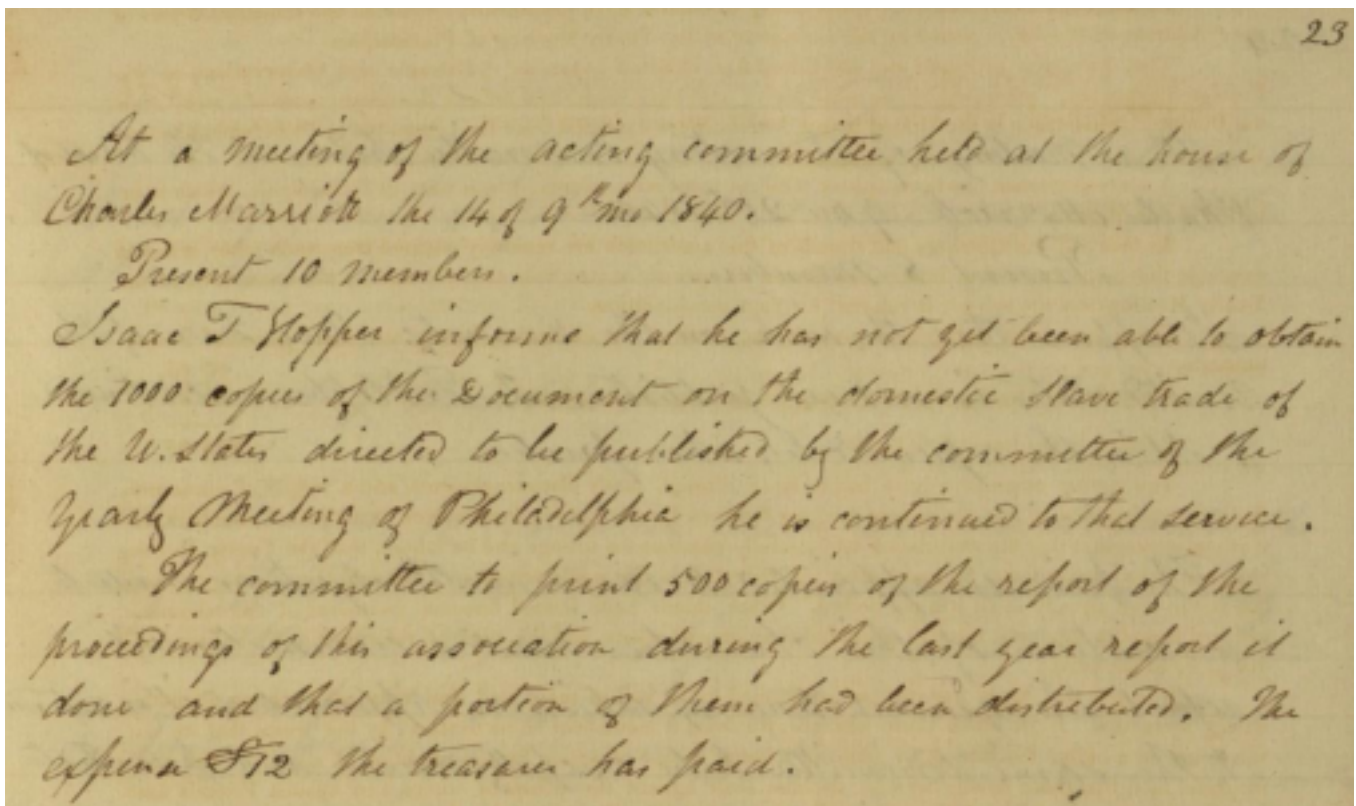 23
At a meeting of the acting committee held at the house of
Charles Marriott the 14 of 9th mo 1840.
Present 10 members.
Isaac T Hopper informs that he has not yet been able to obtain
the 1000 copies of the Document on the domestic slave trade of
the U. States directed to be published by the committee of the
Yearly Meeting of Philadelphia he is continued to that service.
The committee to print 500 copies of the report of the
proceedings of this association during the last year report it
done and that a portion of them had been distributed. The
expense $12 the treasurer has paid.